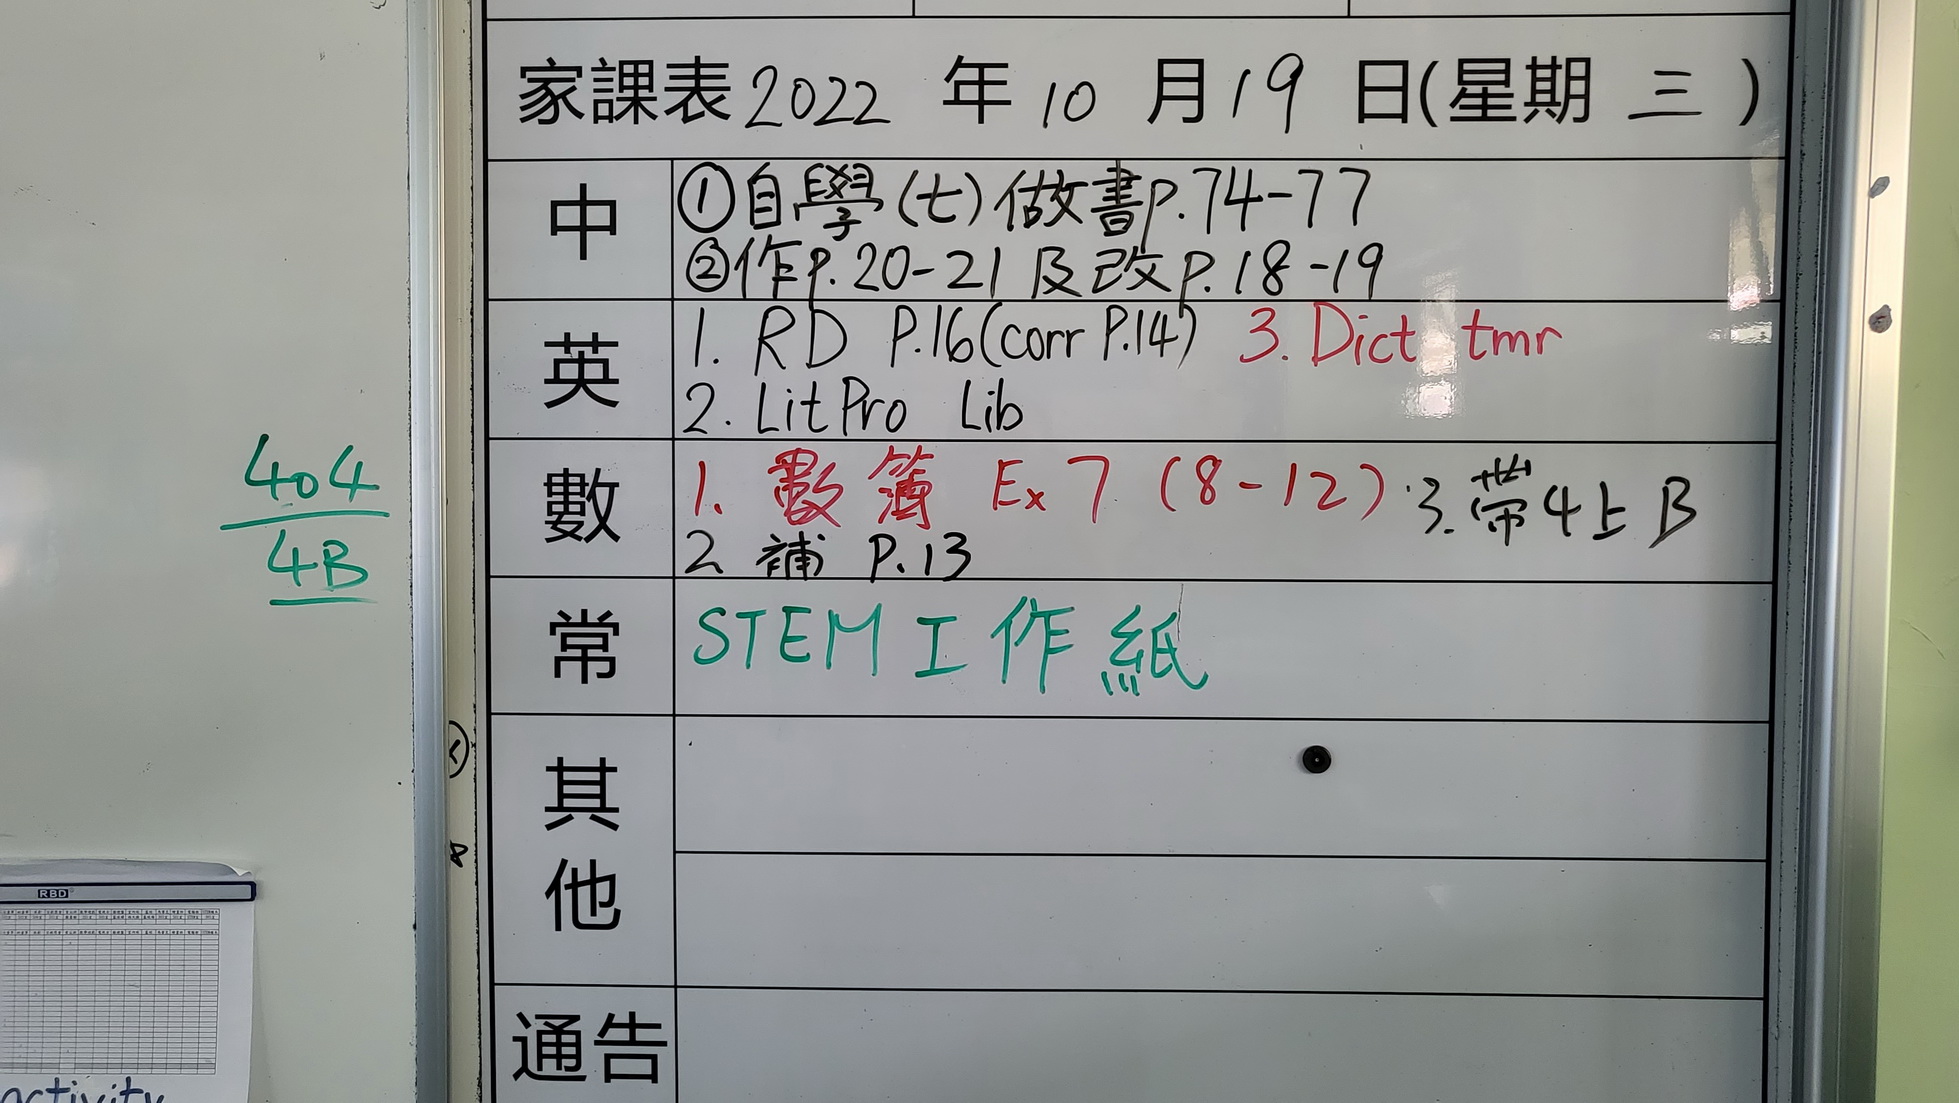 家課表 2022 年 10 月 19 日(星期 三 )
中
①自學(七)做書p.74-77
②作p.20-21 及改p.18-19
英
1. RD P.16(corr P.14) 3. Dict tmr
2. LitPro Lib
數
1. 數簿 Ex 7 (8-12) 3. 帶4上B
2 補 P.13
常
STEM工作紙
其他
通告
404
4B
RBD
activity